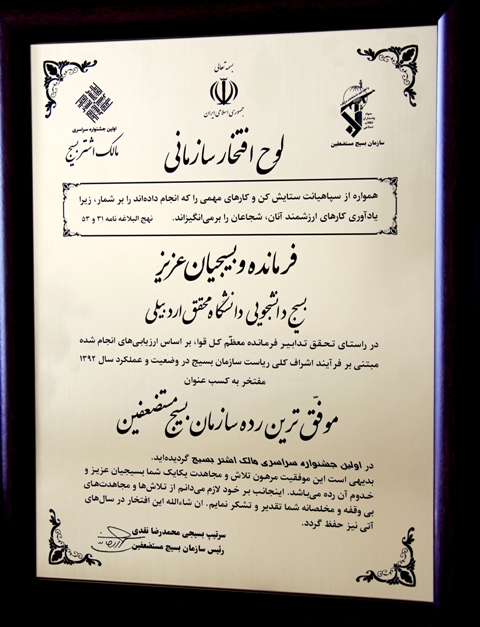 بسمه تعالی
جمهوری اسلامی ایران
اولین جشنواره سراسری
مالک اشتر بسیج
سپاه
پاسداران
انقلاب
اسلامی
سازمان بسیج مستضعفین
لوح افتخار سازمانی
همواره از سپاهیانت ستایش کن و کارهای مهمی را که انجام داده‌اند را بر شمار، زیرا
یادآوری کارهای ارزشمند آنان، شجاعان را برمی‌انگیزاند. نهج البلاغه نامه ۳۱ و ۵۳
فرمانده و بسیجیان عزیز
بسیج دانشجویی دانشگاه محقق اردبیلی
در راستای تحقق تدابیر فرمانده معظّم کل قوا، بر اساس ارزیابی‌های انجام شده
مبتنی بر فرآیند اشراف کلی ریاست سازمان بسیج در وضعیت و عملکرد سال ۱۳۹۲
مفتخر به کسب عنوان
موفّق ترین رده سازمان بسیج مستضعفین
در اولین جشنواره سراسری مالک اشتر بسیج گردیده‌اید.
بدیهی است این موفقیت مرهون تلاش و مجاهدت یکایک شما بسیجیان عزیز و
خدوم آن رده می‌باشد. اینجانب بر خود لازم می‌دانم از تلاش‌ها و مجاهدت‌های
بی وقفه و مخلصانه شما تقدیر و تشکر نمایم. ان شاءالله این افتخار در سال‌های
آتی نیز حفظ گردد.
سرتیپ بسیجی محمدرضا نقدی
رئیس سازمان بسیج مستضعفین